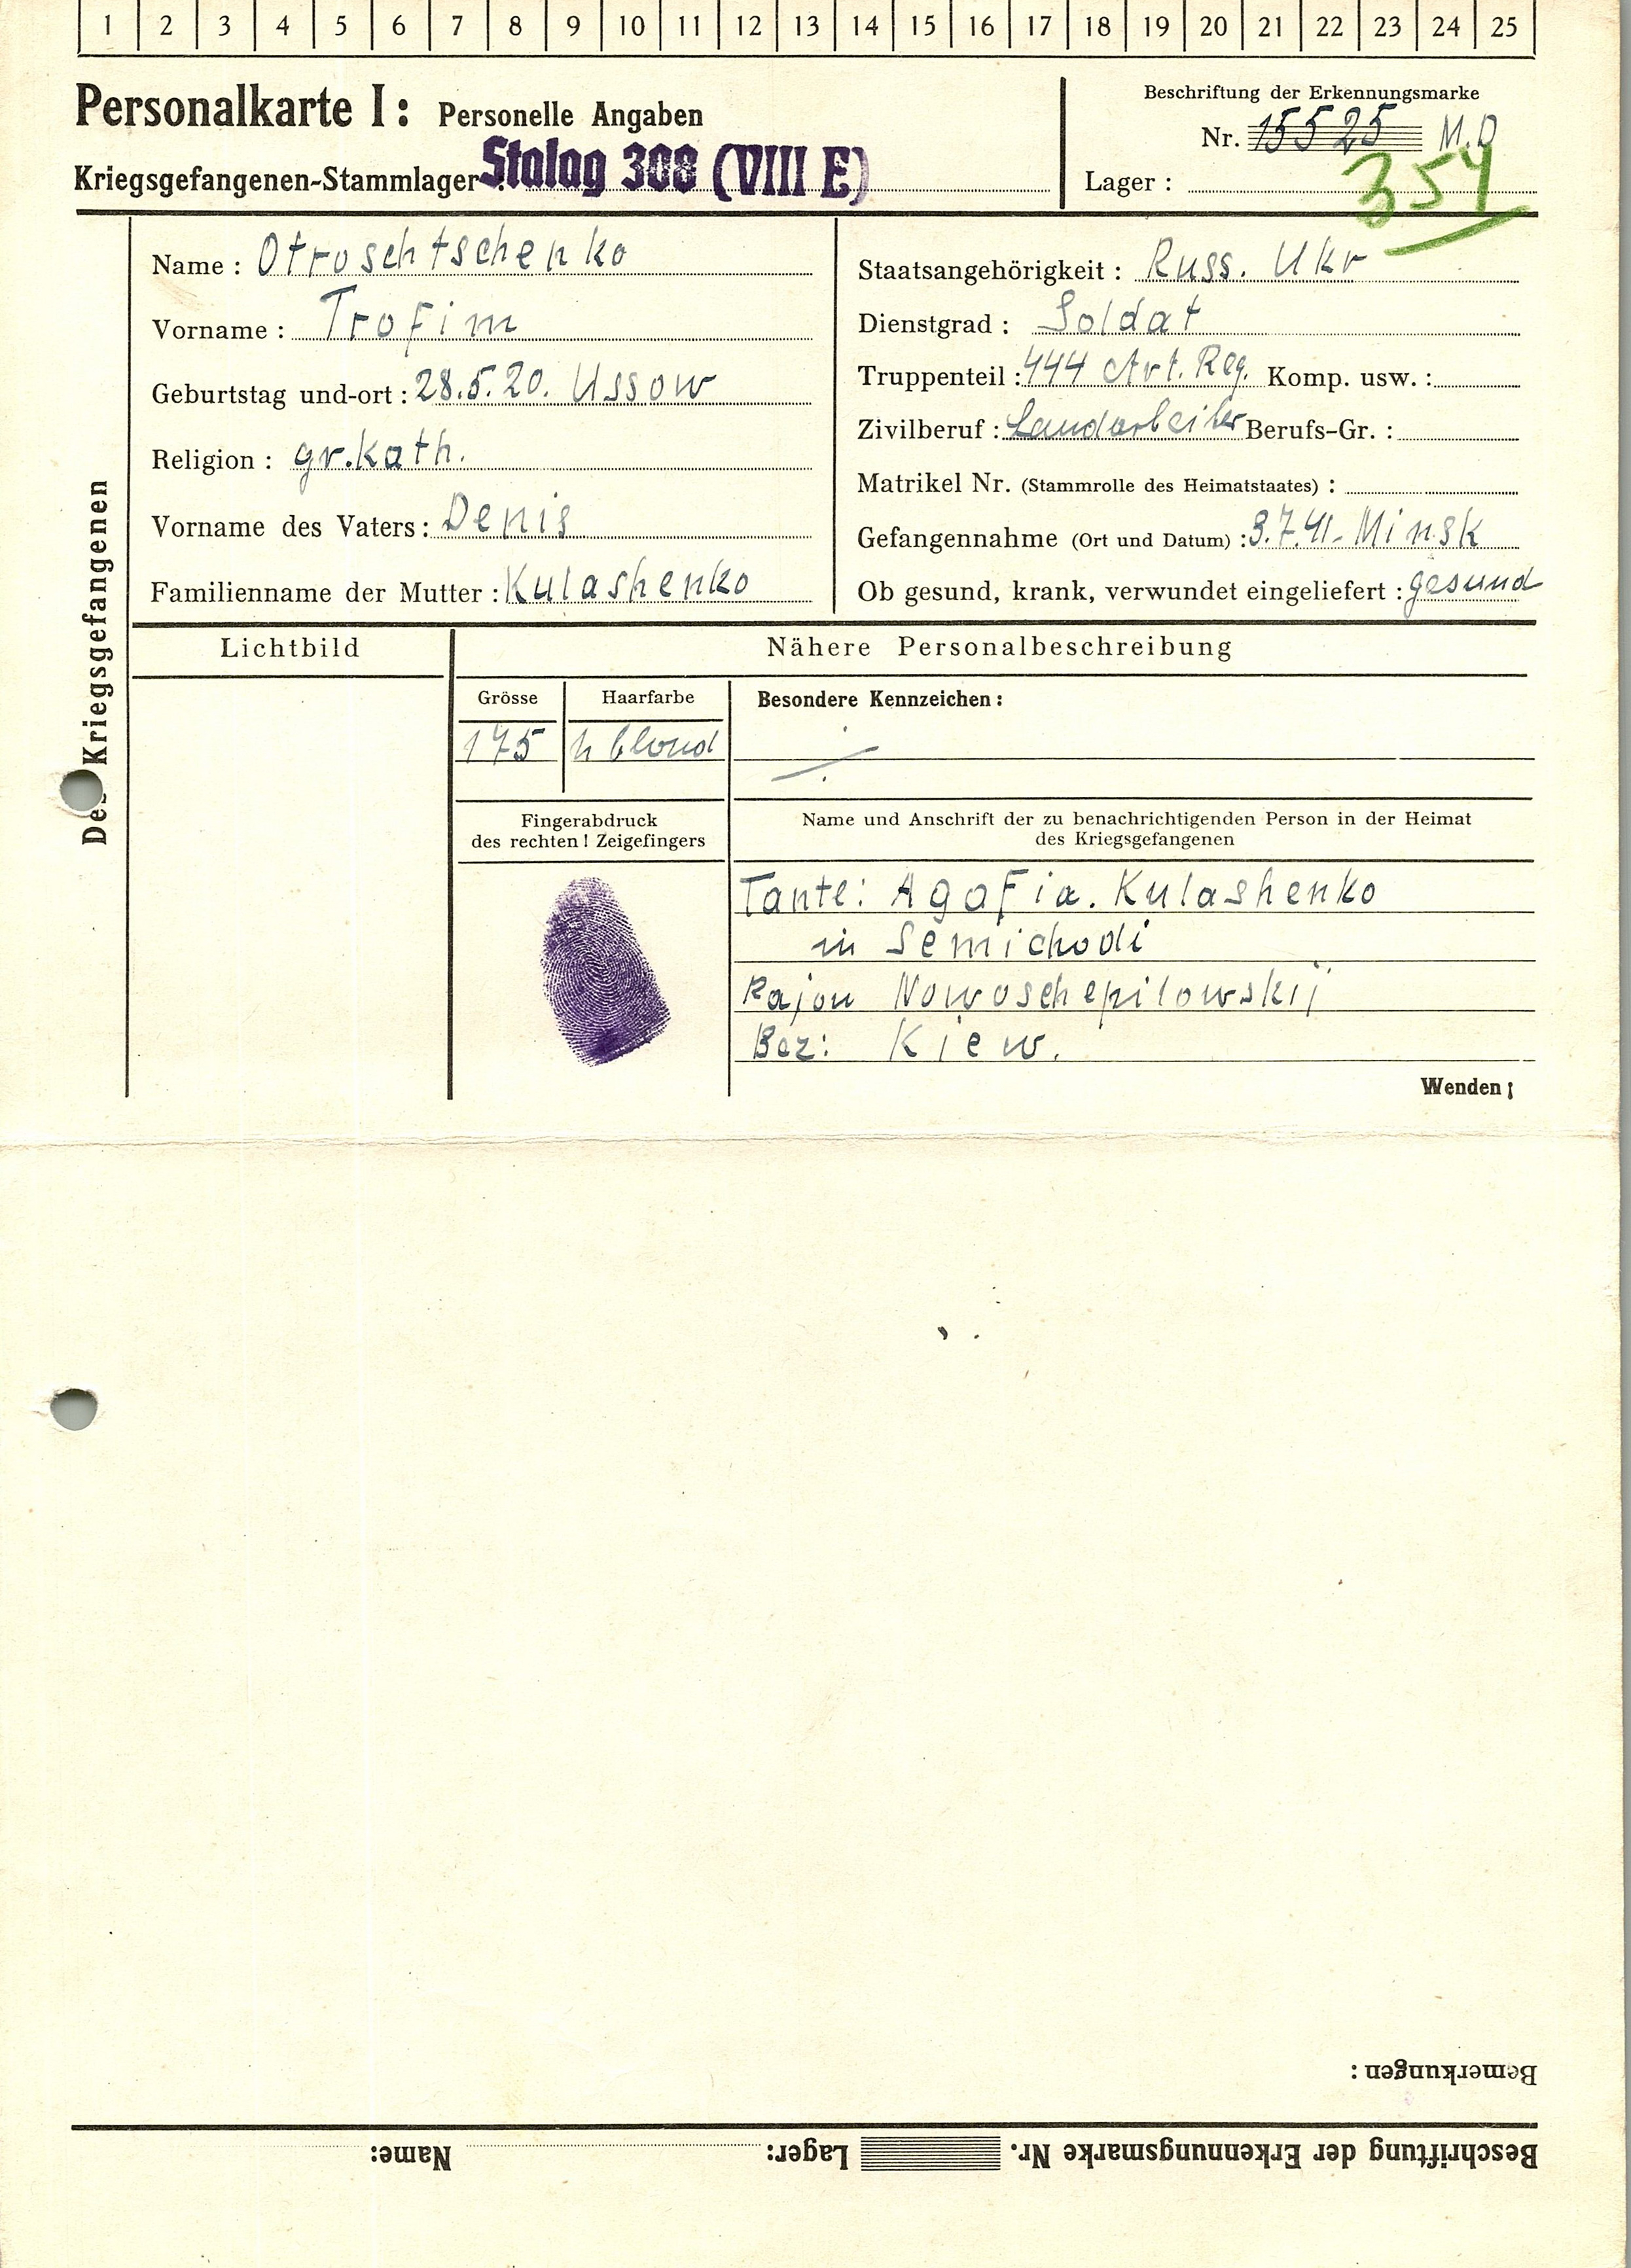 1 2 3 4 5 6 7 8 9 10 11 12 13 14 15 16 17 18 19 20 21 22 23 24 25
Personalkarte I: Personelle Angaben
Kriegsgefangenen-Stammlager: Stalag 308 (VIII E)
Beschriftung der Erkennungsmarke
Nr. 15525 M.D
Lager: 354
Des Kriegsgefangenen
Name: Otroschtschenko
Vorname: Trofim
Geburtstag und-ort: 28.5.20. Ussow
Religion: gr.kath.
Vorname des Vaters: Denis
Familienname der Mutter: Kulashenko
Staatsangehörigkeit: Russ. Ukr
Dienstgrad: Soldat
Truppenteil: 444 Art. Reg. Komp. usw.:
Zivilberuf: Landarbeiter Berufs-Gr.:
Matrikel Nr. (Stammrolle des Heimatstaates):
Gefangennahme (Ort und Datum): 3.7.41. Minsk
Ob gesund, krank, verwundet eingeliefert: gesund
Lichtbild
Nähere Personalbeschreibung
Grösse
175
Haarfarbe
h blond
Besondere Kennzeichen:
Fingerabdruck
des rechten! Zeigefingers
Name und Anschrift der zu benachrichtigenden Person in der Heimat
des Kriegsgefangenen
Tante: Agafia. Kulashenko
in Semichodi
Rajon Nowoschepilowskij
Bez: Kiew.
Wenden!
Bemerkungen:
Beschriftung der Erkennungsmarke Nr. Lager: Name: